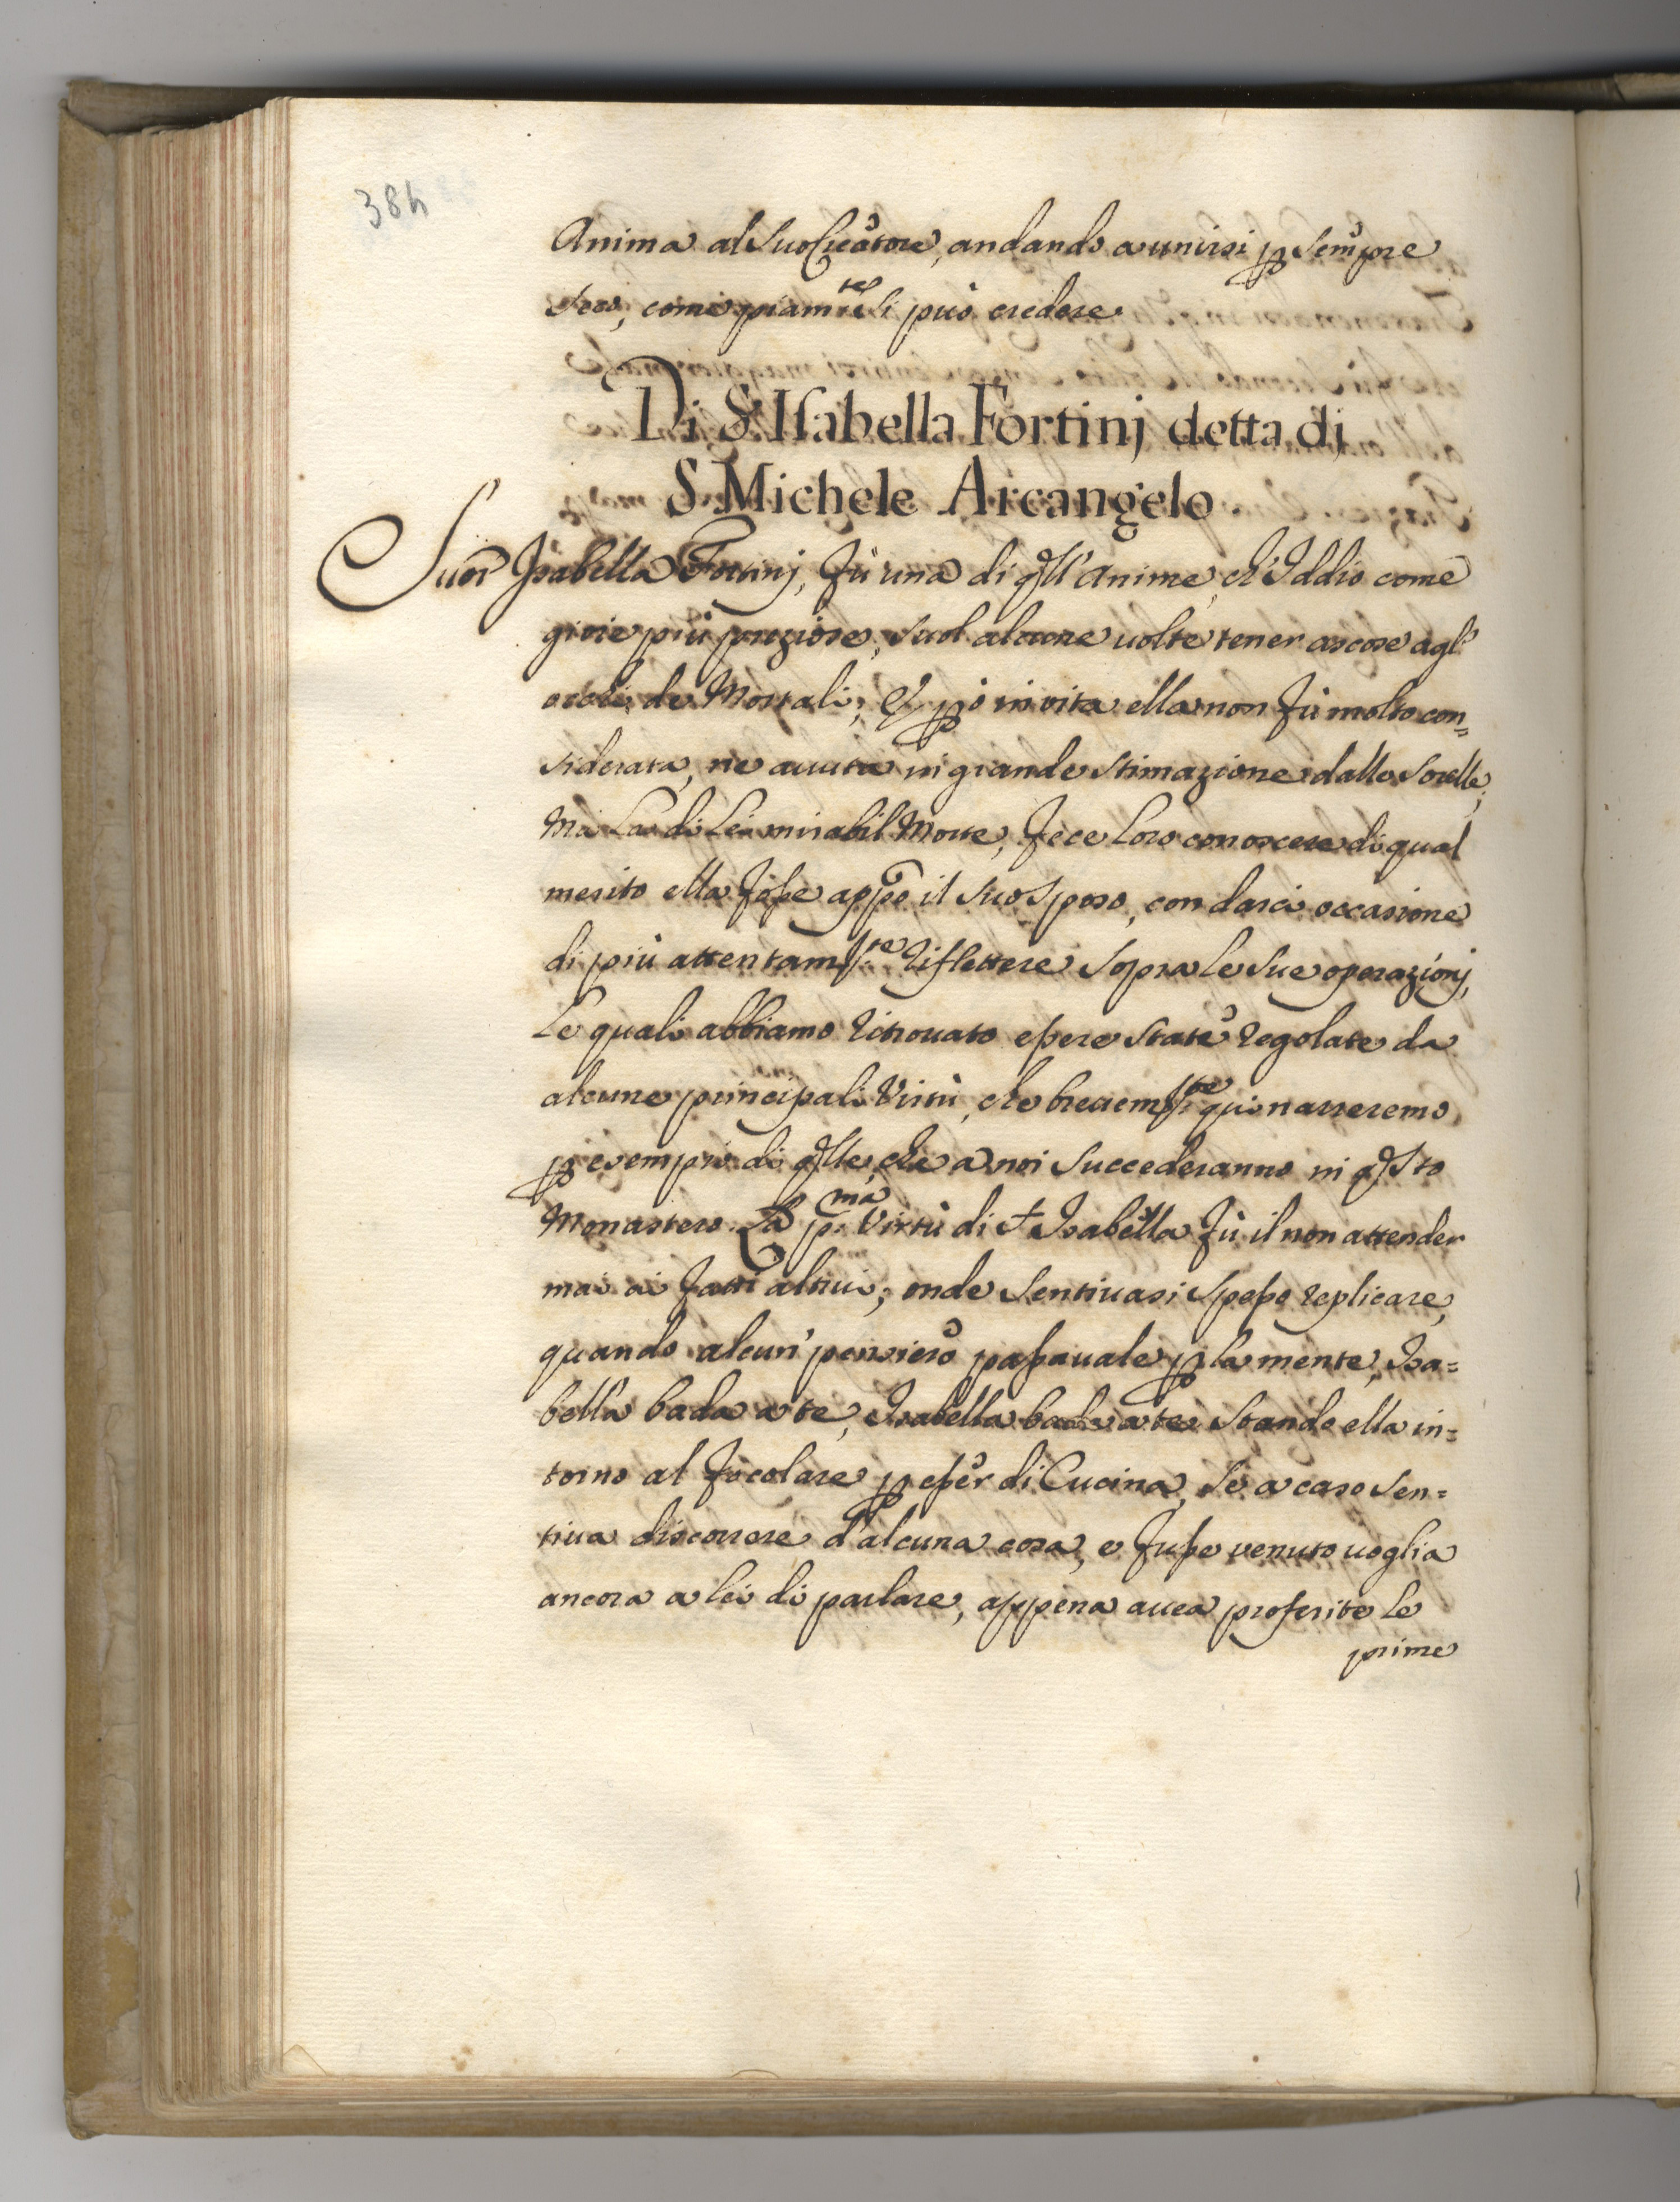 384
Anima al suo Creatore, andando a unirsi p sempre
seco, come piamte si può credere.
Di Sr Isabella Fortinj detta di
S. Michele Arcangelo
Suor Isabella Fortinj, fù una di qll'Anime, ch'Iddio come
gioie più preziose, suol alcune uolte tener ascose agl'
occhi de Mortali; E pò in vita ella non fù molto con=
siderata, ne auuta in grande stimazione dalle Sorelle;
Ma La di Lei mirabil Morte, fece loro conoscere di qual
merito ella fosse appo il suo Sposo, con darci occasione
di più attentamte riflettere sopra le sue operazionj,
Le quali abbiamo ritrouato essere state regolate da
alcune principali Virtù, che breuemte qui narreremo
p esempio di qlle, che a noi succederanno in qsto
Monastero. La pma Virtù di Sr Isabella fù il non attender
mai ai fatti altrui; onde sentiuasi spesso replicare,
quando alcun pensiero passauale p la mente, Isa=
bella bada a te, Isabella bada a te. Stando ella in=
torno al focolare p esser di Cucina, se a caso sen=
tiua discorrere d'alcuna cosa, e fusse venuto uoglia
ancora a lei di parlare, appena auea proferite le
prime